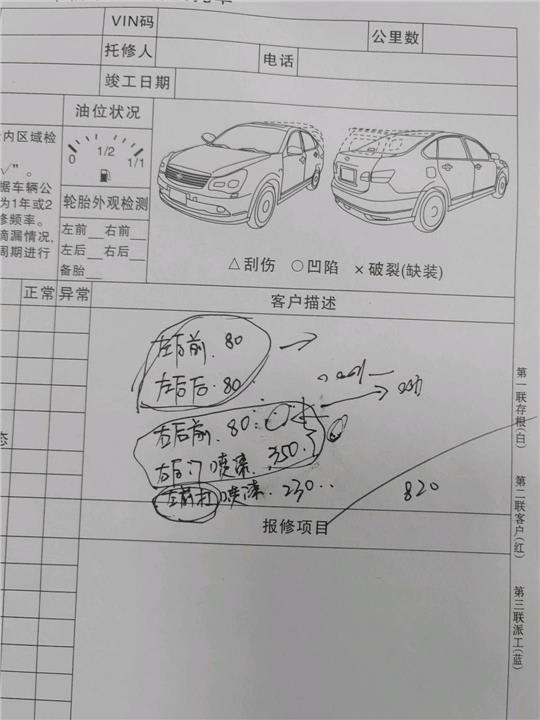 VIN码
公里数
托修人
电话
竣工日期
油位状况
内区域检
√"。
0 1/2 1/1
据车辆公
为1年或2
修频率。
滴漏情况,
周期进行
轮胎外观检测
左前__右前__
左后__右后__
备胎__
△刮伤 ○凹陷 ×破裂(缺装)
正常 异常
客户描述
左前. 80
左后后 80.
右后前. 80.
右后门喷漆. 350.
左前打喷漆. 230..
820
报修项目
第一联存根(白)
第二联客户(红)
第三联派工(蓝)